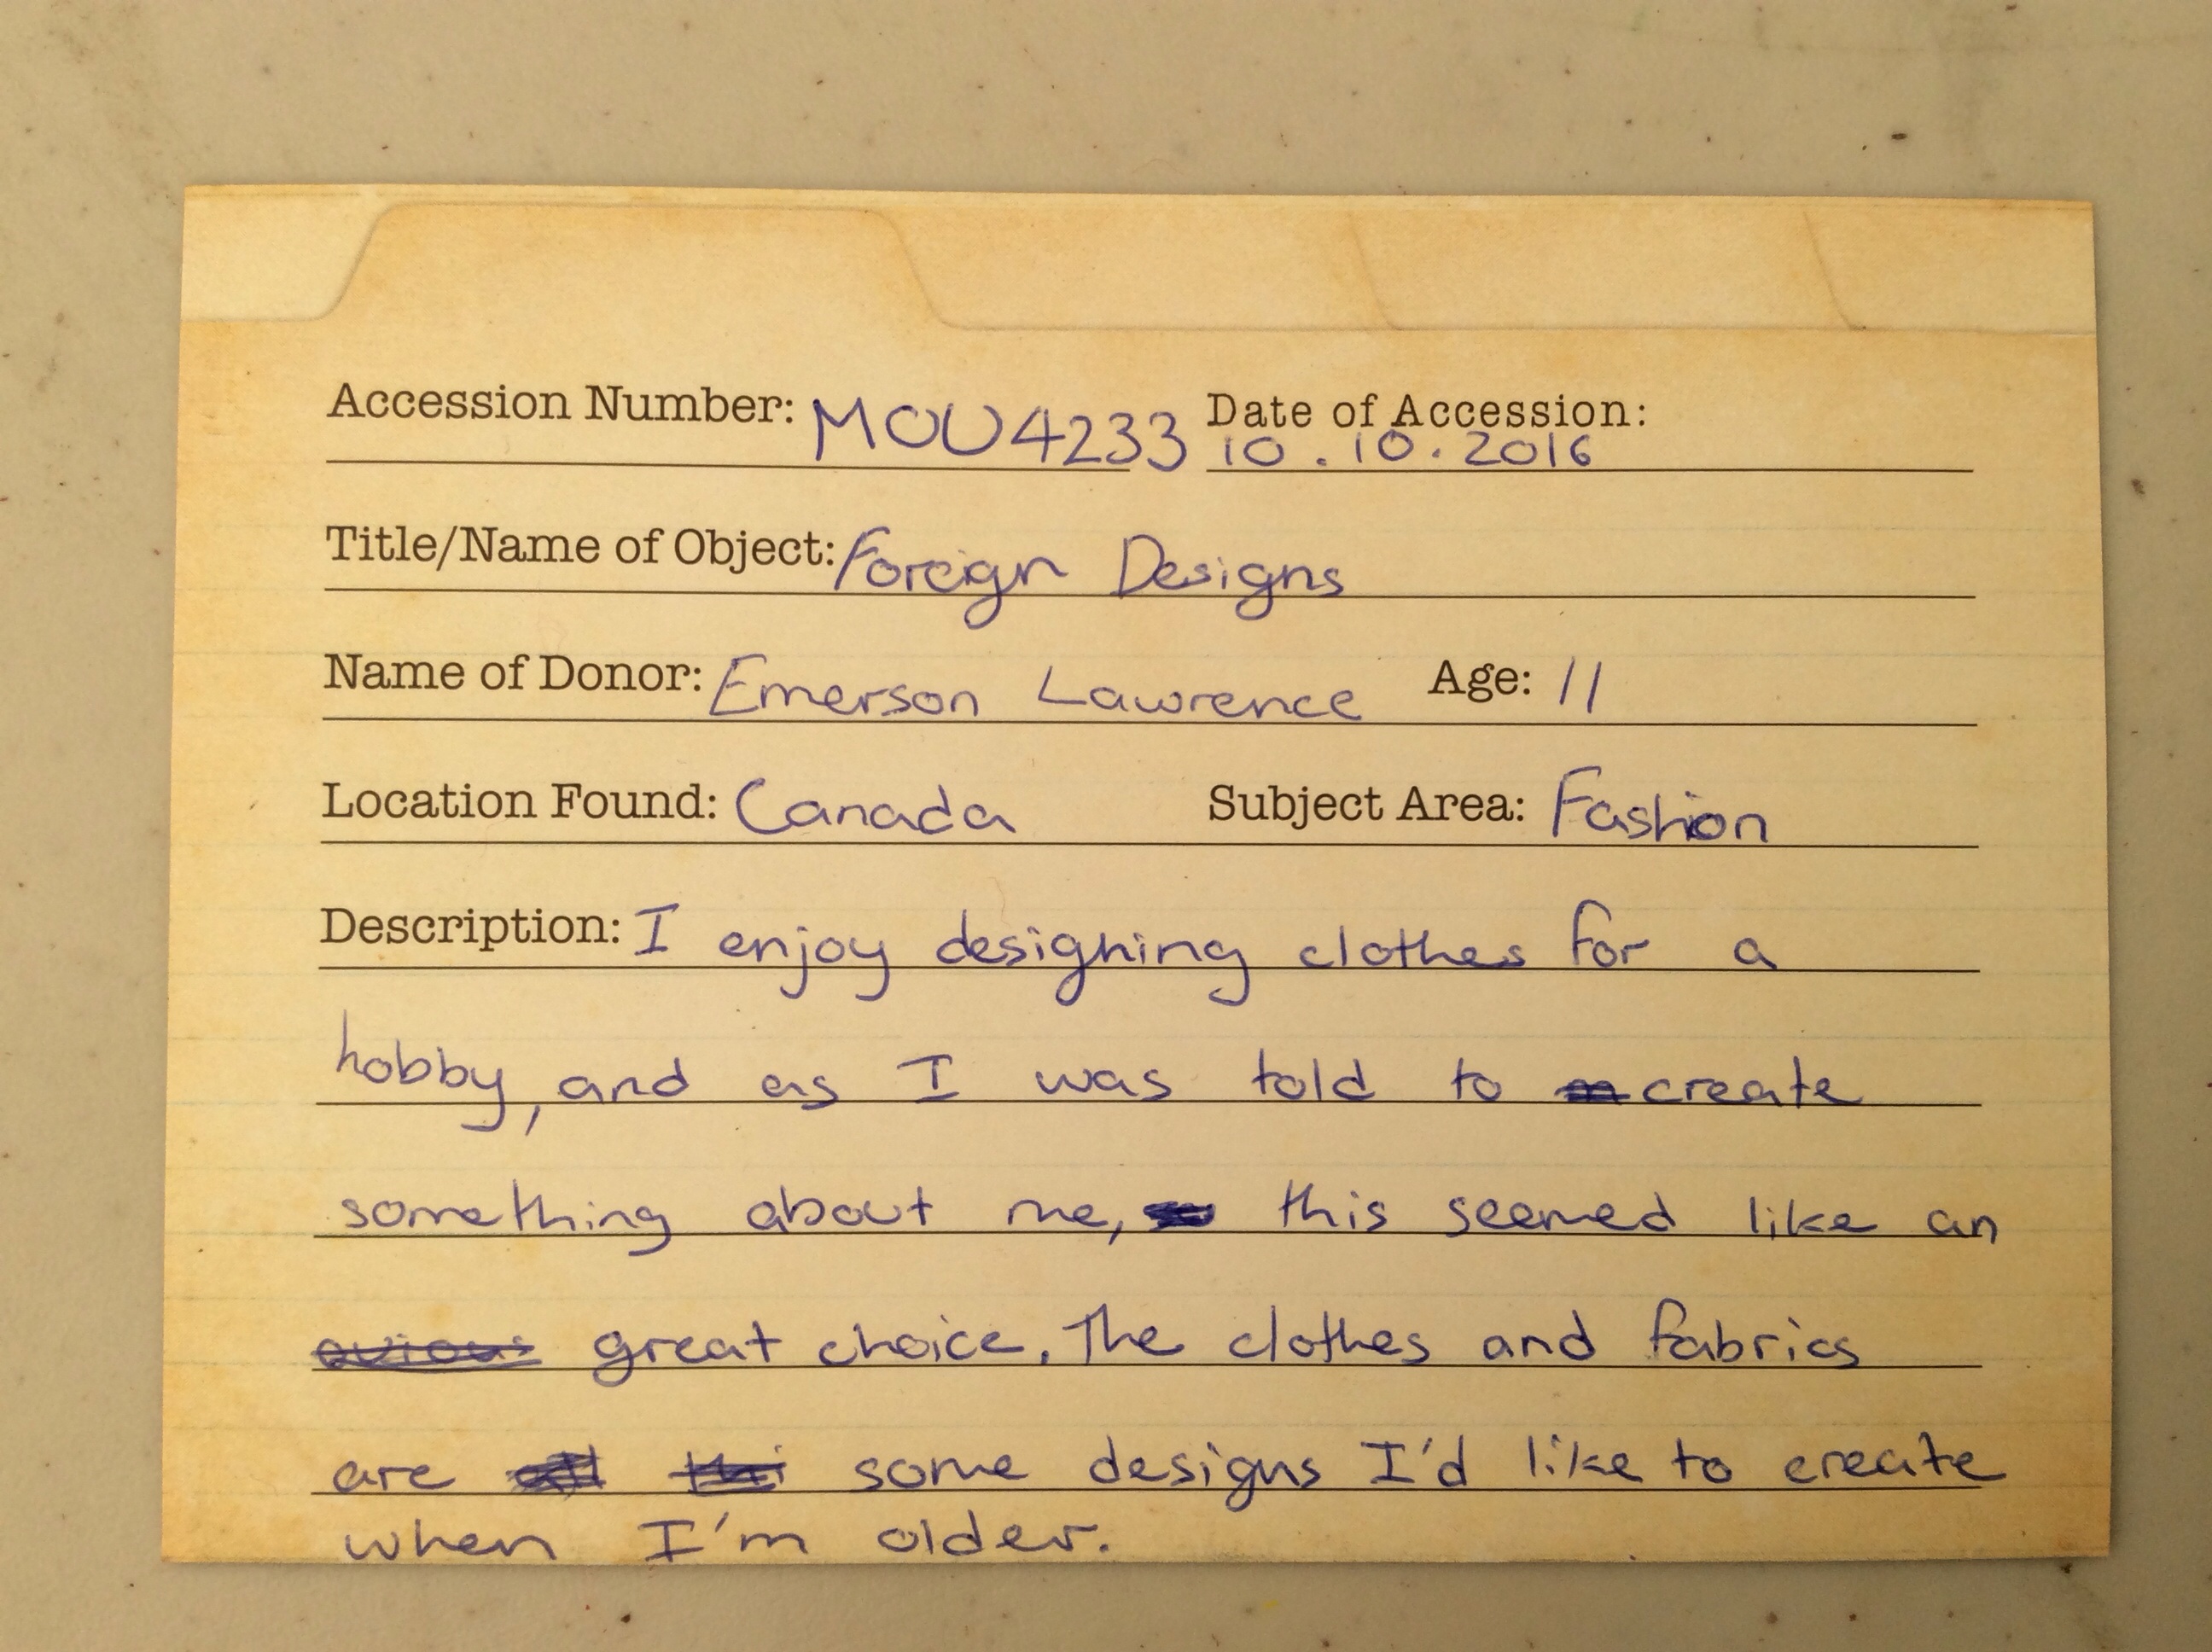 Accession Number: MOU4233 Date of Accession: 10.10.2016
Title/Name of Object: Foreign Designs
Name of Donor: Emerson Lawrence Age: 11
Location Found: Canada Subject Area: Fashion
Description: I enjoy designing clothes for a
hobby, and as I was told to create
something about me, this seemed like an
avious great choice. The clothes and fabrics
are some designs I'd like to create
when I'm older.